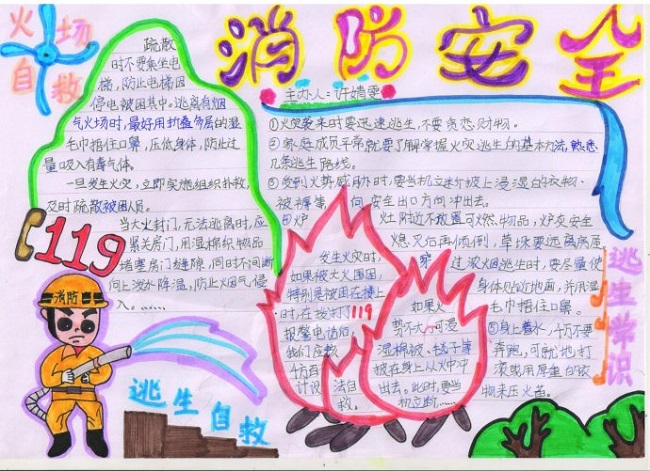 消防安全
火场
自救
疏散
时不要乘坐电
梯,防止电梯因
停电被困其中,逃离有烟
气火场时,最好用折叠多层的湿
毛巾捂住口鼻,压低身体,防止过
量吸入有毒气体。
一旦发生火灾,立即实施组织扑救,
及时疏散被困人员。
119
当大火封门,无法逃离时,应
紧关房门,用湿棉织物品
堵塞房门缝隙,同时不间断
向上泼水降温,防止火烟气侵
入。……
消防
逃生自救
主办人:许婧雯
①火灾袭来时要迅速逃生,不要贪恋财物。
②家庭成员平常就要了解掌握火灾逃生的基本方法,熟悉
几条逃生路线。
③受到火势威胁时,要当机立断披上浸湿的衣物、
被褥等 向安全出口方向冲出去。
④炉 灶附近不放置可燃物品,炉灰安全
熄灭后再倾倒,草垛要远离房屋
穿 过浓烟逃生时,要尽量使
身体贴近地面,并用湿
毛巾捂住口鼻。
⑤身上着火,千万不要
奔跑,可就地打
滚或用厚重的衣
物来压火苗。
发生火灾时,
如果被大火围困,
特别是被困在楼上
时,在拨打了119
报警电话后,
我们应该
千方百
计设法自
救。
如果火
势不大,可浸
湿棉被、毯子等
披在身上从火中冲
出去。此时,要当
机立断……
逃生常识